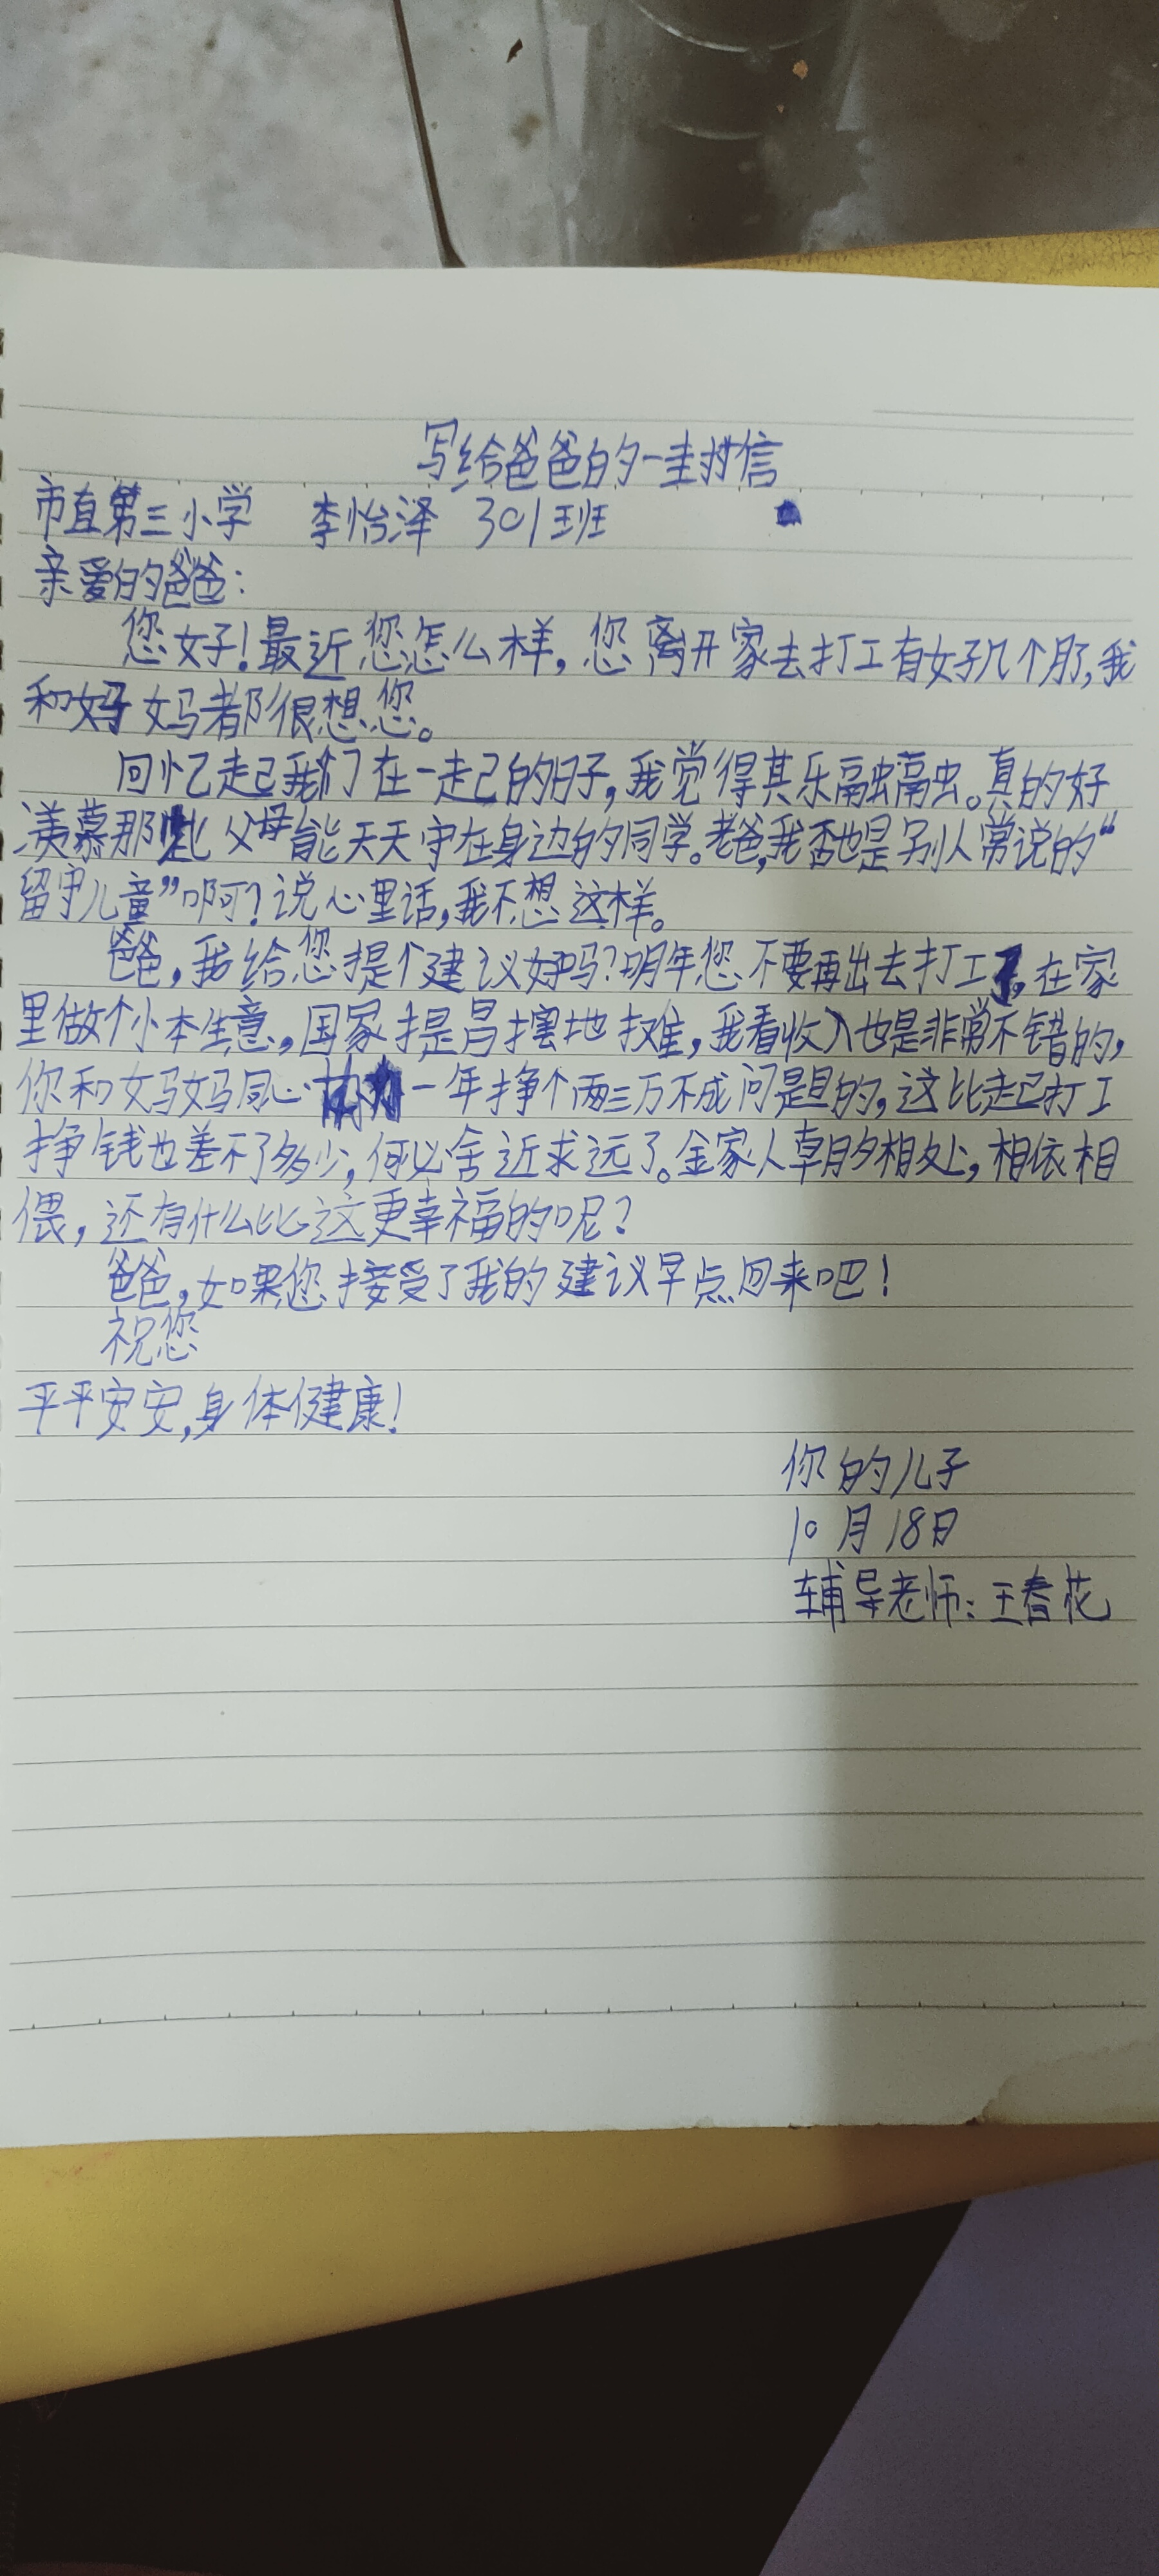 写给爸爸的一封信
市直第三小学 李怡泽 301班
亲爱的爸爸:
您好!最近您怎么样,您离开家去打工有好几个月了,我
和妈妈都很想您。
回忆起我们在一起的日子,我觉得其乐融融。真的好
羡慕那些父母能天天守在身边的同学。老爸,我否也是别人常说的“
留守儿童”啊?说心里话,我不想这样。
爸爸,我给您提个建议好吗?明年您不要再出去打工了,在家
里做个小本生意,国家提昌摆地摊,我看收入也是非常不错的,
你和妈妈同心协力一年挣个两三万不成问题的,这比起打工
挣钱也差不了多少,何必舍近求远了。全家人朝夕相处,相依相
偎,还有什么比这更幸福的呢?
爸爸,如果您接受了我的建议早点回来吧!
祝您
平平安安,身体健康!
你的儿子
10月18日
辅导老师:王春花